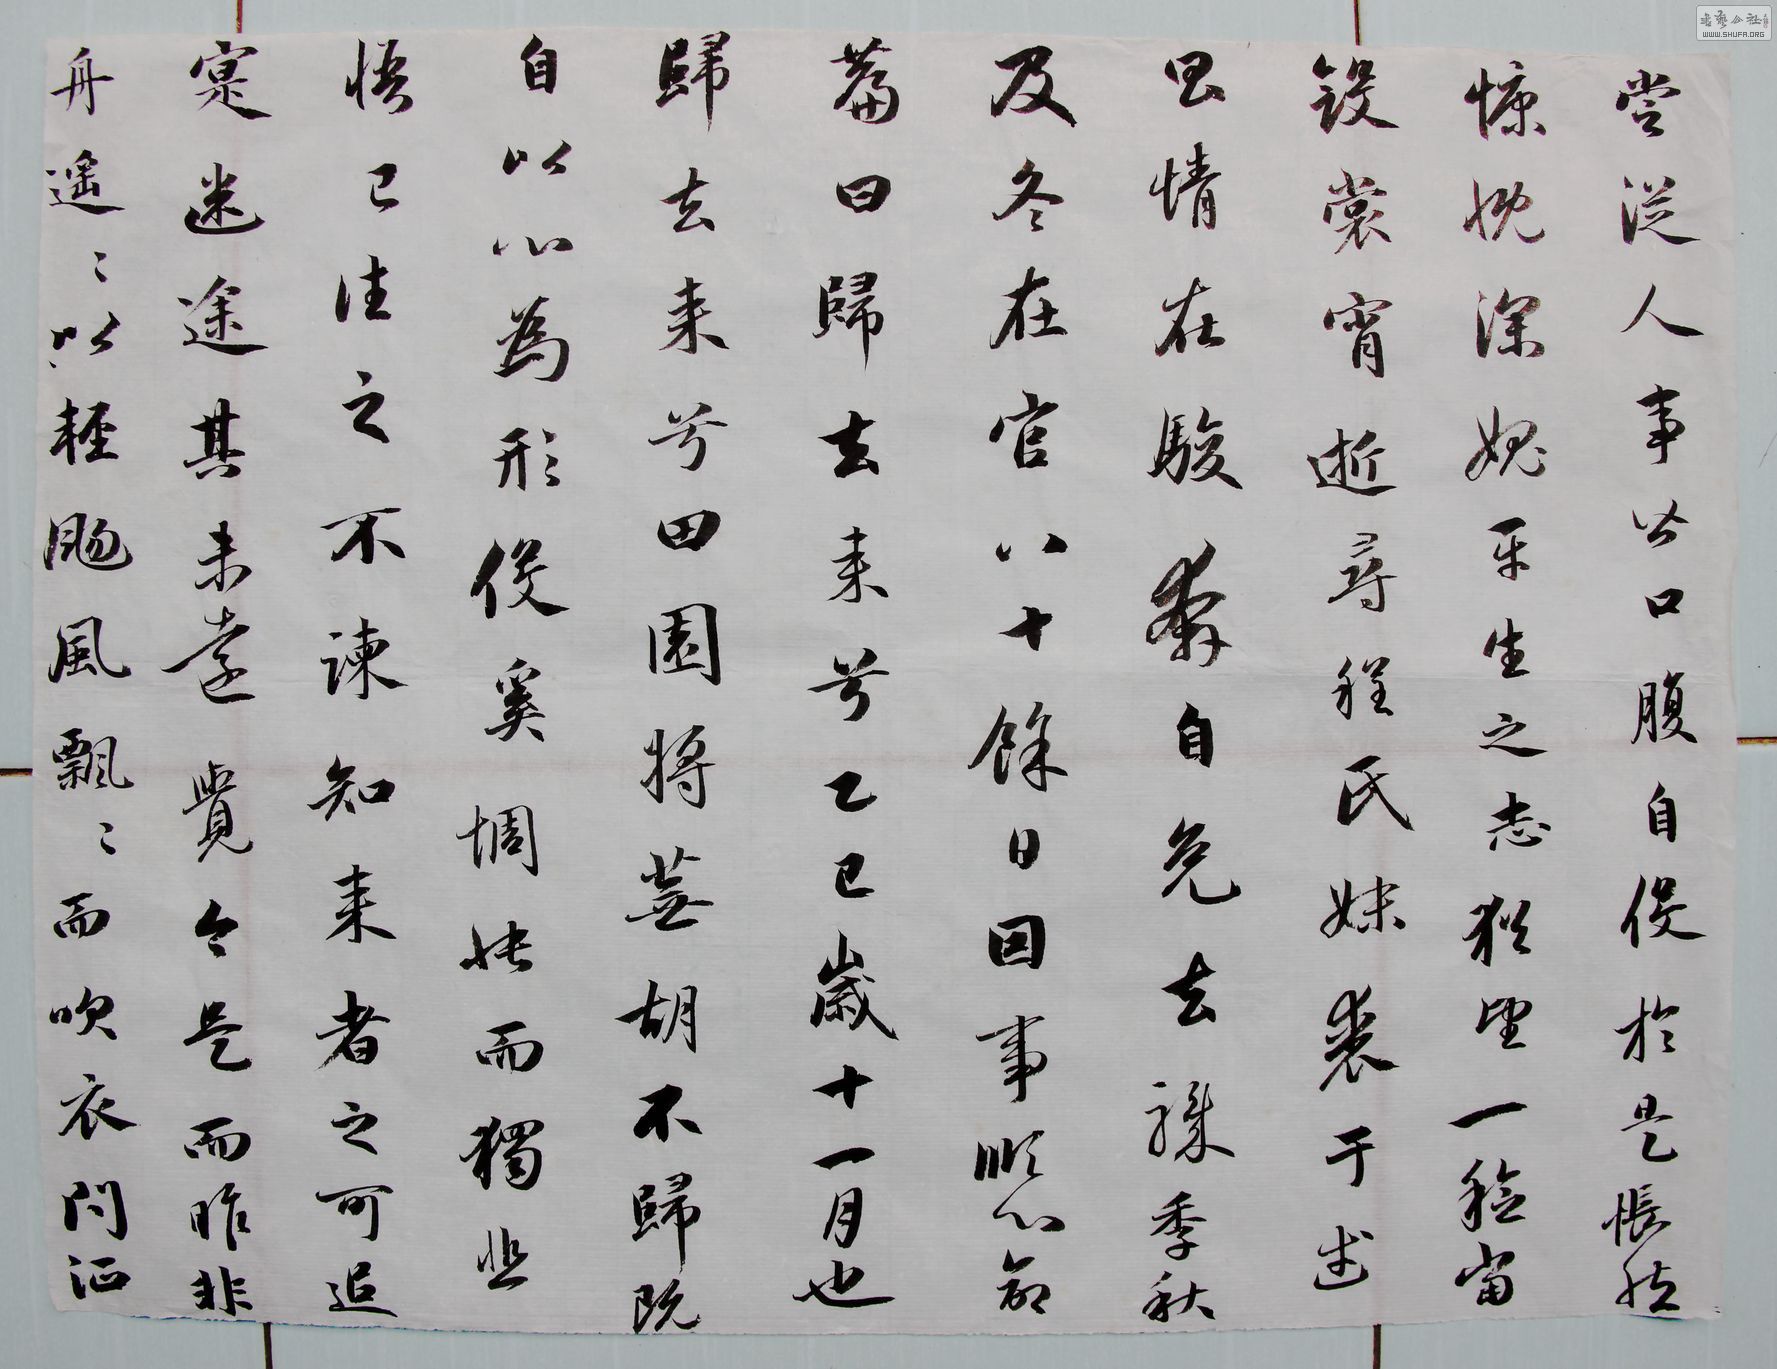 嘗從人事皆口腹自役於是悵然
慷慨深媿平生之志猶望一稔當
設裳宵逝尋程氏妹喪于武
昌情在駿奔自免去職季秋
及冬在官八十餘日因事順心命
篇曰歸去来兮乙巳歲十一月也
歸去来兮田園將蕪胡不歸既
自以心為形役奚惆悵而獨悲
悟已往之不諫知来者之可追
寔迷途其未遠覺今是而昨非
舟遥〻以輕颺風飄〻而吹衣問征
書藝公社
WWW.SHUFA.ORG